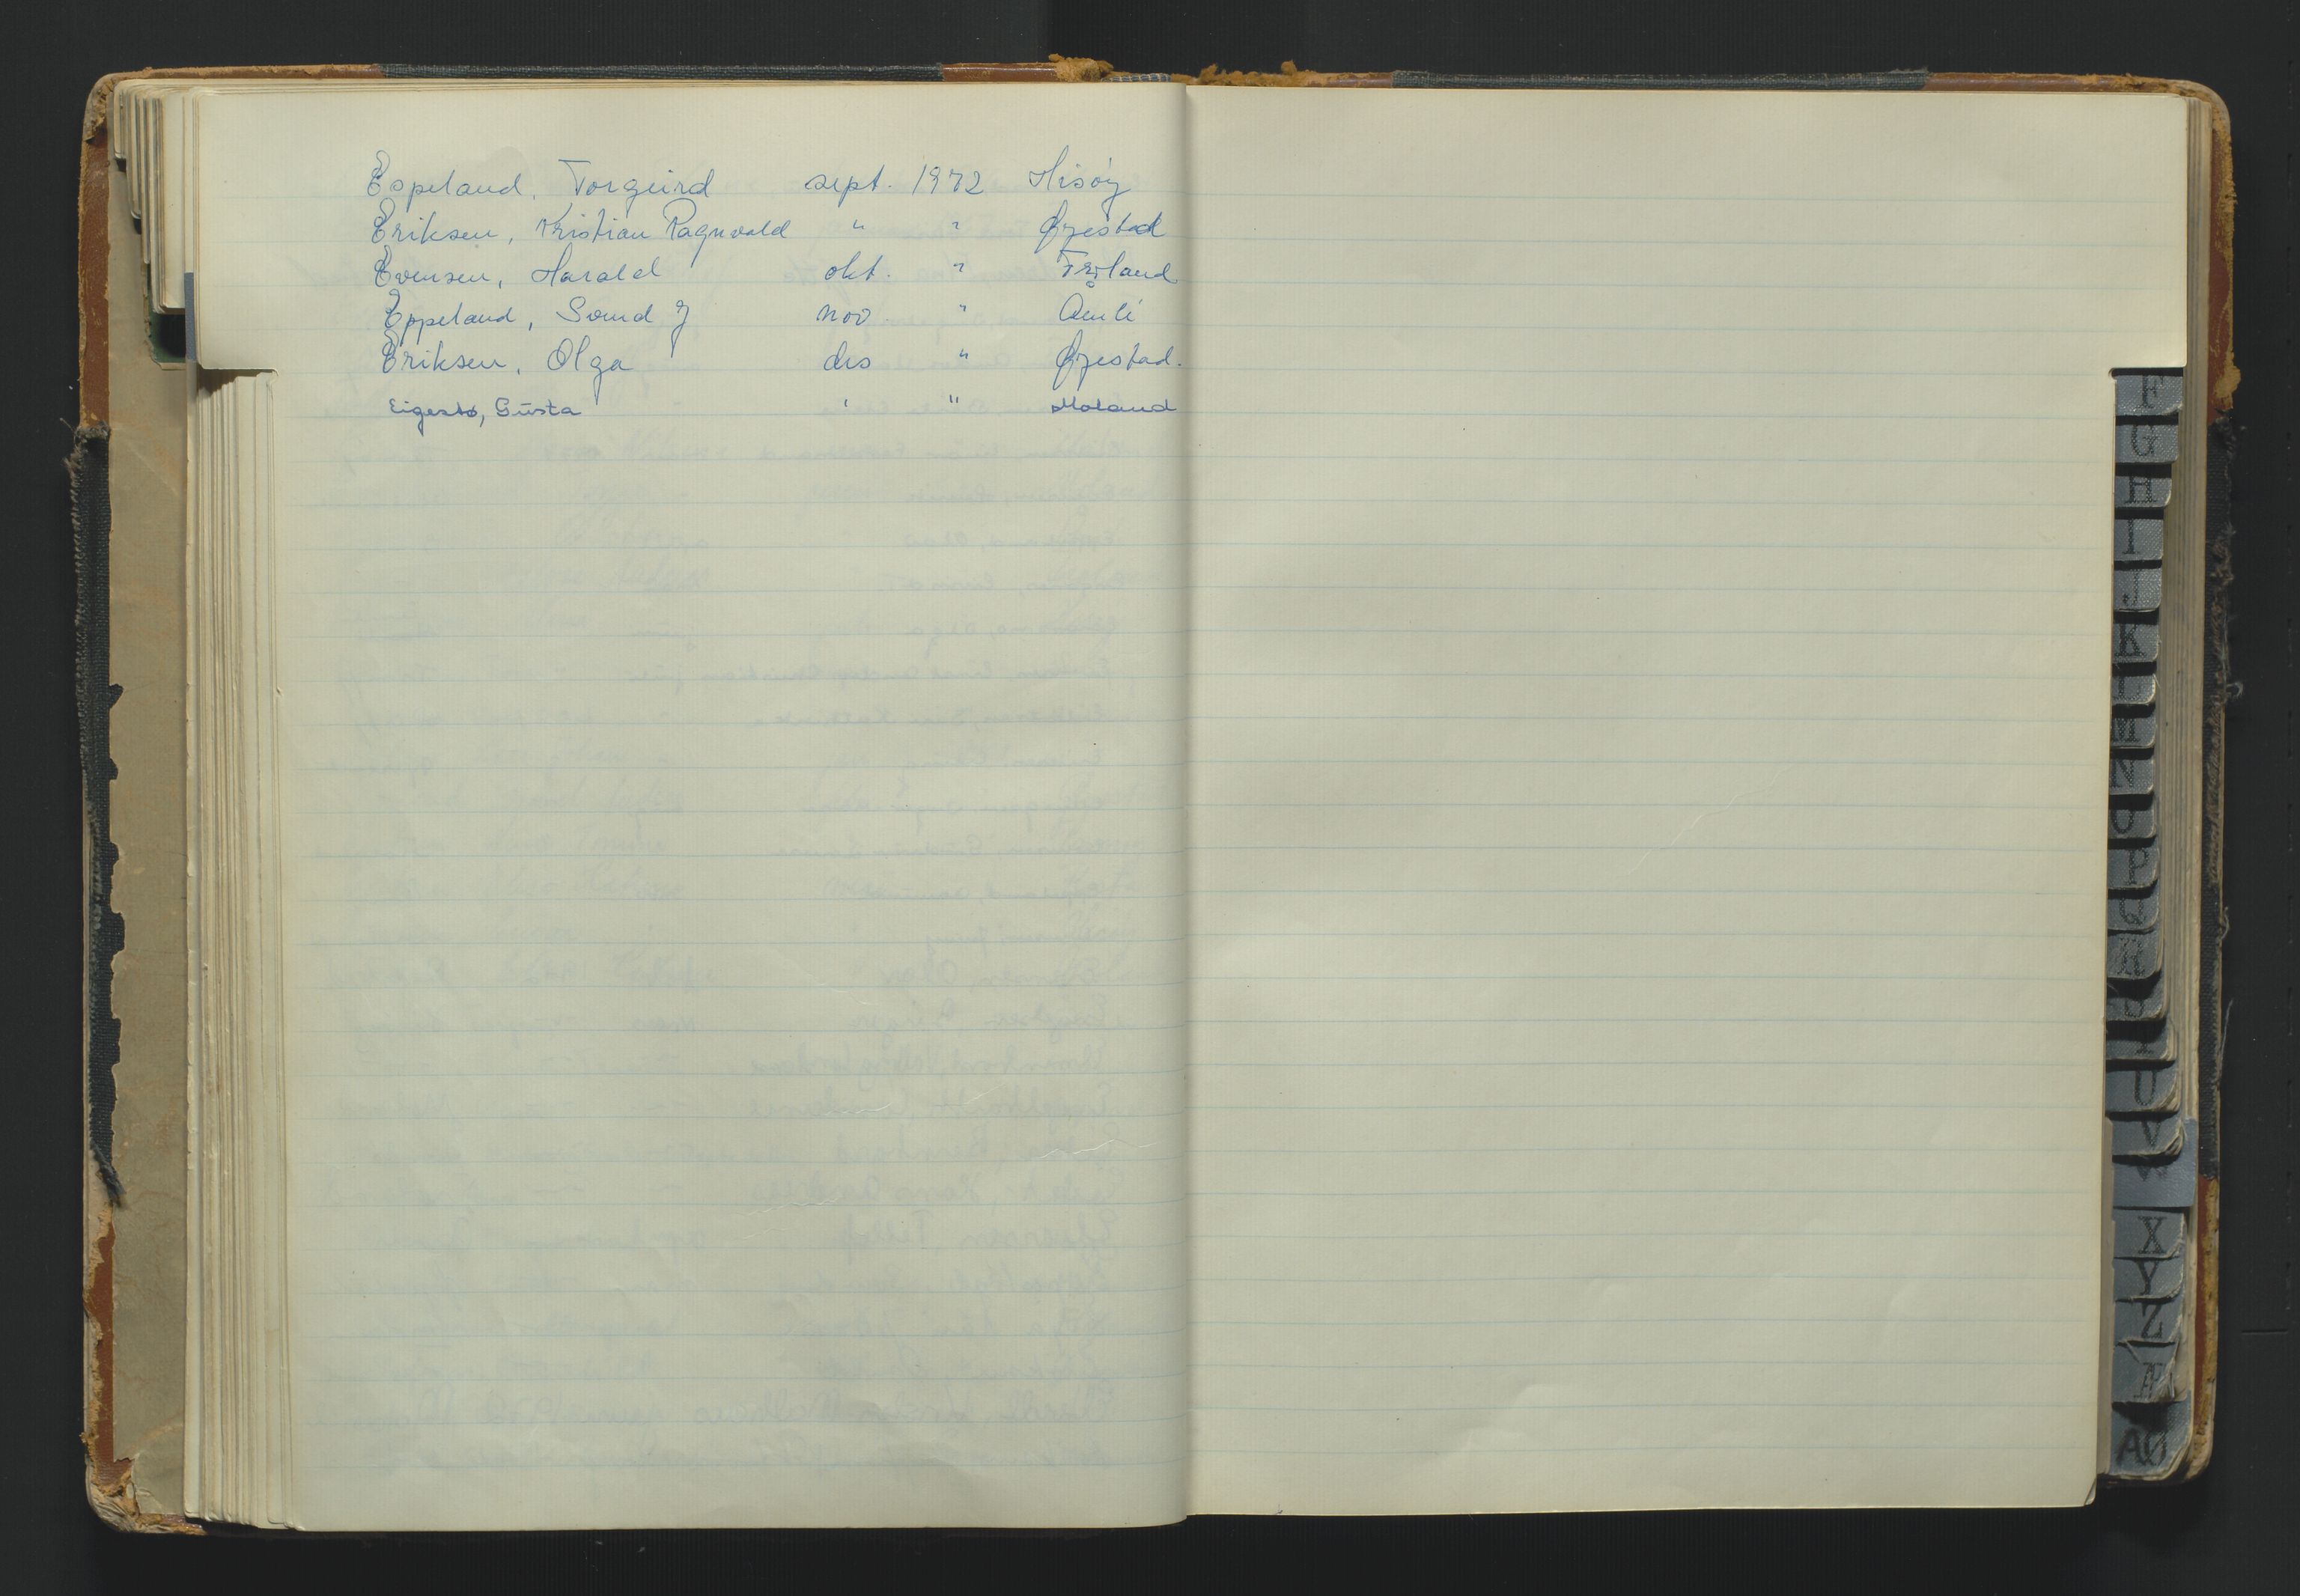 Espeland, Torgeird sept. 1972 Hisøy
Eriksen, Kristian Ragnvald " " Øyestad
Evensen, Harald okt. " Froland
Eppeland, Svend J nov. " Åmli
Eriksen, Olga des " Øyestad.
Eigestø, Gusta " " Moland
F
G
H
I
J
K
L
M
N
O
P
Q
R
S
T
U
V
W
X
Y
Z
Æ
AØ